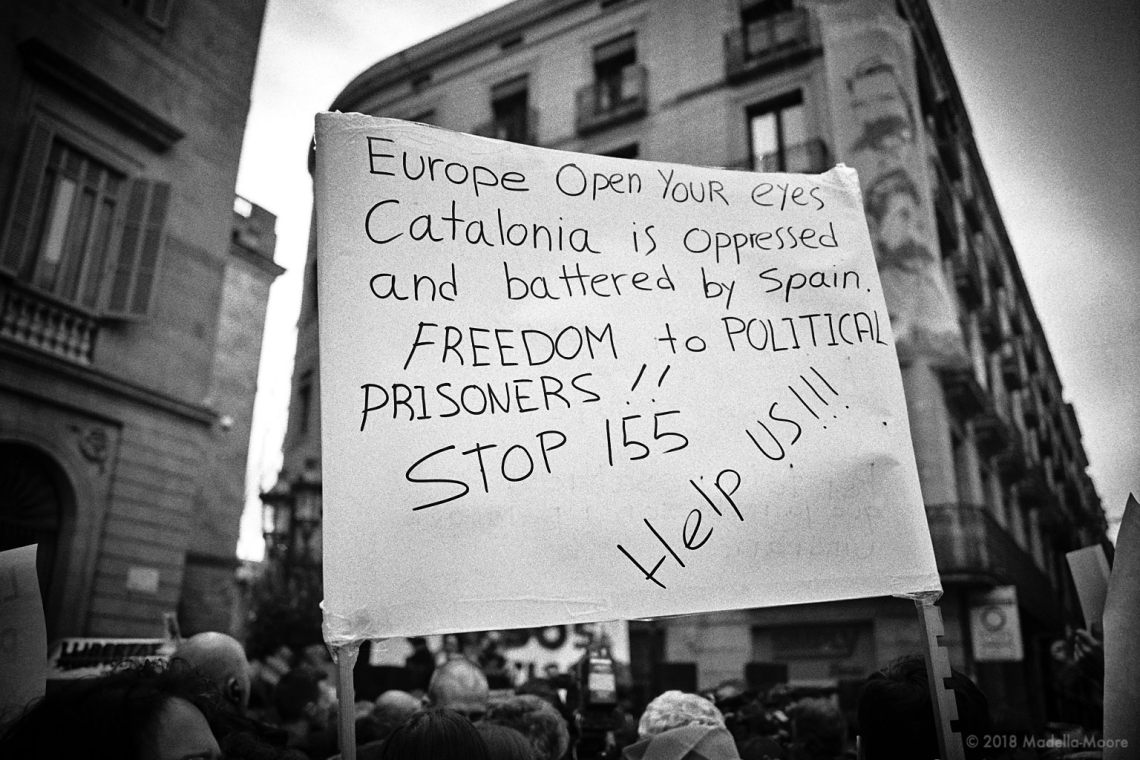 Europe Open YOUR eyes
Catalonia is oppressed
and battered by Spain.
FREEDOM to POLITICAL
PRISONERS !!
STOP 155
Help US!!!
LLIBERTAT
© 2018 Madella-Moore